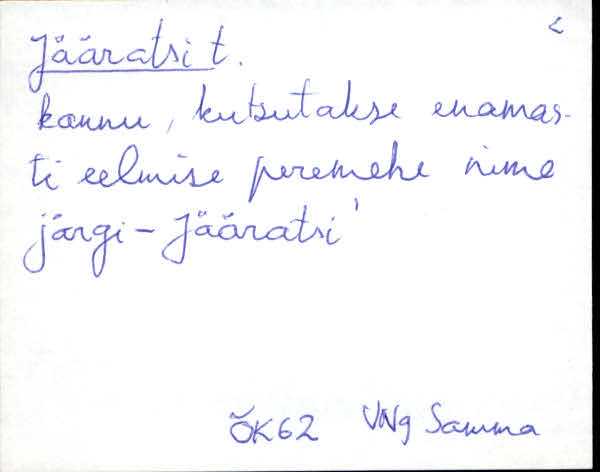 Jääratsi t.
kannu, kutsutakse enamas-
ti eelmise peremehe nime
järgi - Jääratsi'
ÕK62 VNg Samma